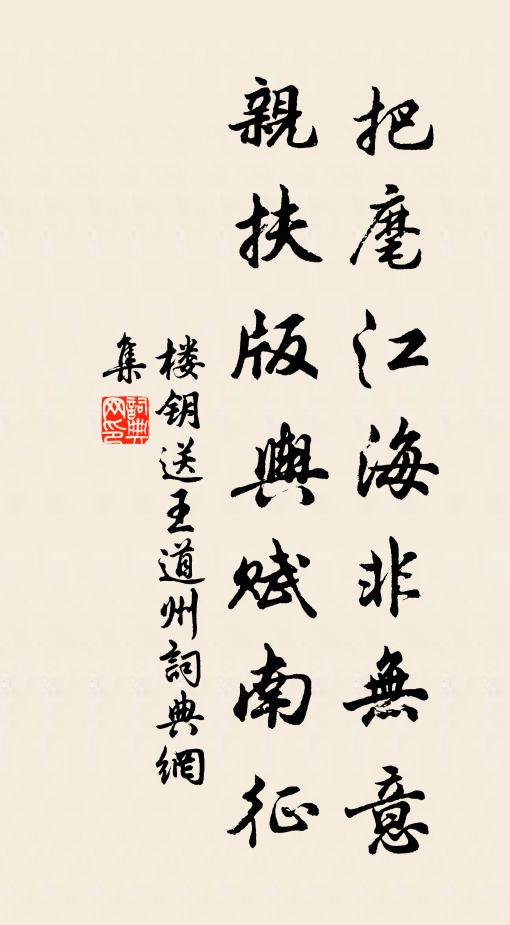 把麾江海非無意
親扶版輿賦南征
楼钥送王道州詞典網
集
詞典网印